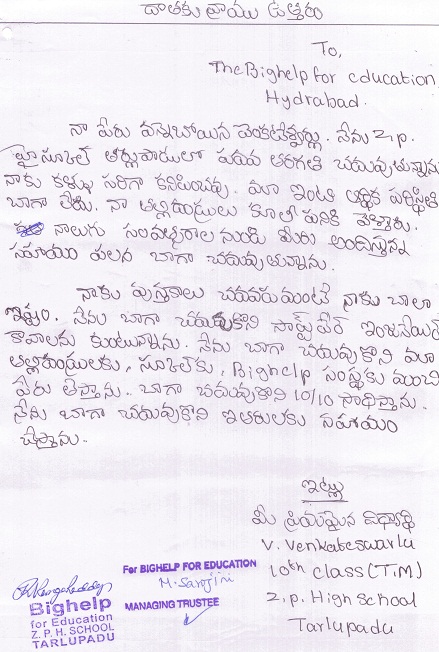 దాతకు వ్రాయు ఉత్తరం
To,
The Bighelp for education
Hydrabad.
నా పేరు వన్నెబోయిన వెంకటేశ్వర్లు. నేను Z.P.
హైస్కూల్ తర్లుపాడులో పదవ తరగతి చదువుతున్నాను
నాకు కళ్ళు సరిగా కనిపించవు. మా ఇంటి ఆర్థిక పరిస్థితి
బాగా లేదు. నా తల్లిదండ్రులు కూలి పనికి వెళ్ళారు.
నాలుగు సంవత్సరాల నుండి మీరు అందిస్తున్న
సహాయం వలన బాగా చదువుతున్నాను.
నాకు పుస్తకాలు చదవడమంటే నాకు చాలా
ఇష్టం. నేను బాగా చదువుకొని సాఫ్ట్ వేర్ ఇంజనీయర్
కావాలను కుంటున్నాను. నేను బాగా చదువుకొని మా
తల్లిదండ్రులకు, స్కూల్‌కు, Bighelp సంస్థకు మంచి
పేరు తెస్తాను. బాగా చదువుకొని 10/10 సాధిస్తాను.
నేను బాగా చదువుకొని ఇతరులకు సహాయం
చేస్తాను.
ఇట్లు
మీ ప్రియమైన విద్యార్థి
V. Venkateswarlu
10th class (T.M)
Z.p. High school
Tarlupadu
For BIGHELP FOR EDUCATION
M. Sarojini
MANAGING TRUSTEE
Bighelp
for Education
Z. P. H. SCHOOL
TARLUPADU